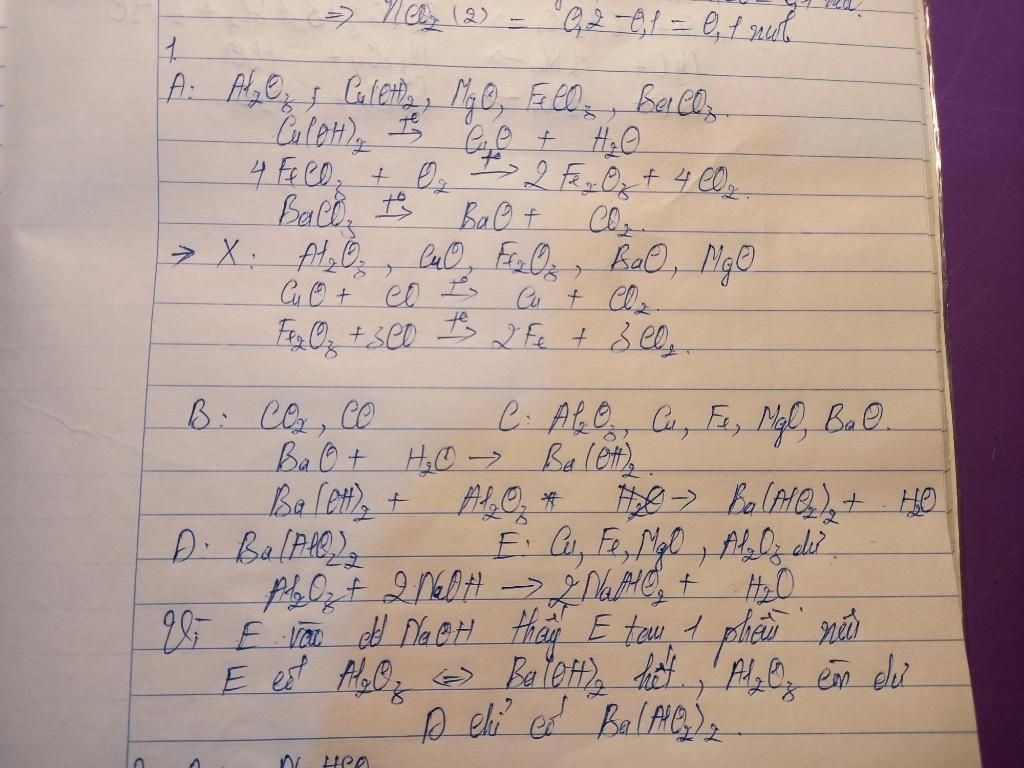 => nCO₂ (2) = 0,2 - 0,1 = 0,1 mol
1.
A: Al₂O₃, Cu(OH)₂, MgO, FeCO₃, BaCO₃.
Cu(OH)₂ →(t°) CuO + H₂O
4FeCO₃ + O₂ →(t°) 2Fe₂O₃ + 4CO₂.
BaCO₃ →(t°) BaO + CO₂.
→ X: Al₂O₃, CuO, Fe₂O₃, BaO, MgO
CuO + CO →(t°) Cu + CO₂.
Fe₂O₃ + 3CO →(t°) 2Fe + 3CO₂.
B: CO₂, CO C: Al₂O₃, Cu, Fe, MgO, BaO.
BaO + H₂O → Ba(OH)₂.
Ba(OH)₂ + Al₂O₃ → Ba(AlO₂)₂ + H₂O
D: Ba(AlO₂)₂ E: Cu, Fe, MgO, Al₂O₃ dư.
Al₂O₃ + 2NaOH → 2NaAlO₂ + H₂O
Vì E vào dd NaOH thấy E tan 1 phần nên
E có Al₂O₃ <=> Ba(OH)₂ hết, Al₂O₃ còn dư
D chỉ có Ba(AlO₂)₂.